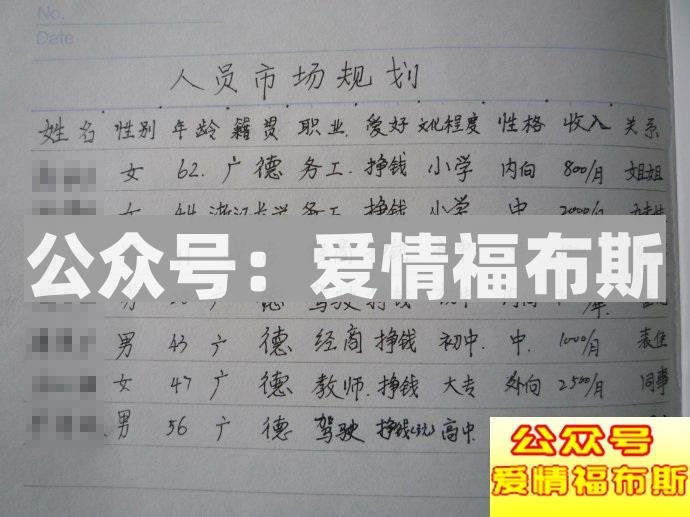 No.
Date
人员市场规划
姓名 性别 年龄 籍贯 职业 爱好 文化程度 性格 收入 关系
女 62. 广德 务工. 挣钱 小学 内向 800/月 姐姐
女 44 浙江长兴 务工 挣钱 小学 中 2000/月
公众号：爱情福布斯
男 广德 驾驶 挣钱
男 43 广德 经商 挣钱 初中. 中. 1000/月 表侄
女 47 广德 教师. 挣钱 大专 外向 2500/月 同事
男 56 广德 驾驶 挣钱 高中
公众号
爱情福布斯